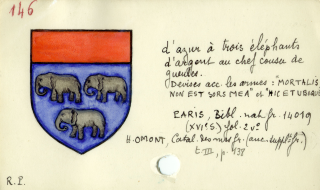 146
d'azur à trois éléphants
d'argent au chef cousu de
gueules.
Devises acc. les armes : "MORTALIS
NON EST SORS MEA" et "HIC ET UBIQUE"
PARIS, Bibl. nat. fr. 14019
(XVIe S) fol. 2 v°
H. OMONT, Catal. des mss fr. (anc. suppl. fr.)
t. III, p. 139
R.P.